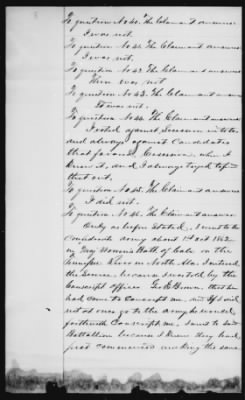 To question No 40. The Claimant answers
I was not.
To question No 41. The Claimant answers
I was not.
To question No 42. The Claimant answers
There was not
To question No 43. The Claimant answers
It was not.
To question No 44. The Claimant answers
I voted against Secession
and always against Candidates
that favored Secession when I
knew it, and I always voted
that out.
To question No 45. The Claimant answers
I did not.
To question No 46. The Claimant answers
Only as before stated, I went to the
Confederate army about 1st Oct 1862.
in Batt of Cala on the
Tennessee River in North Ala. I entered
the Service because I was told by the
Conscript officer Geo Brown, that he
had come to Conscript me, and if I did
not at once go to the army he would
forthwith Conscript me. I went to said
Battallion because I knew they had
just commenced making the same